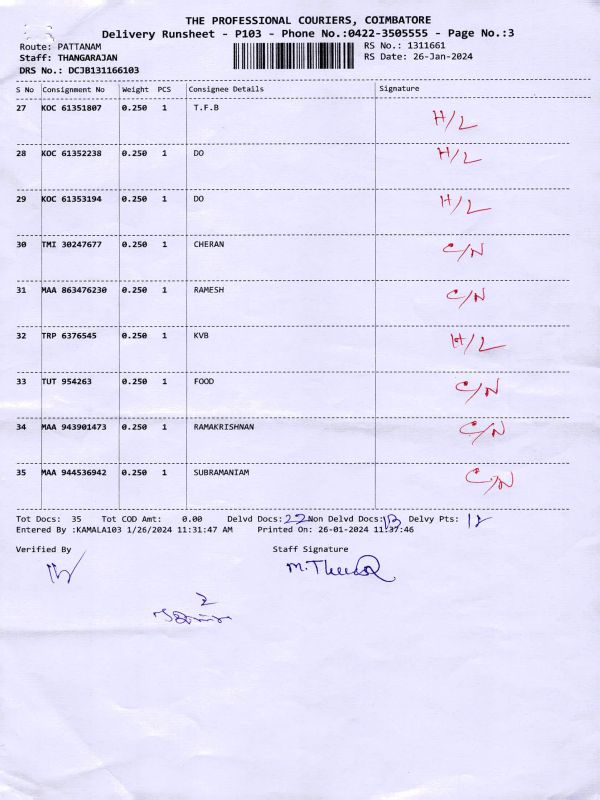 THE PROFESSIONAL COURIERS, COIMBATORE
Delivery Runsheet - P103 - Phone No.:0422-3505555 - Page No.:3
Route: PATTANAM RS No.: 1311661
Staff: THANGARAJAN RS Date: 26-Jan-2024
DRS No.: DCJB131166103
S No Consignment No Weight PCS Consignee Details Signature
27 KOC 61351807 0.250 1 T.F.B H/L
28 KOC 61352238 0.250 1 DO H/L
29 KOC 61353194 0.250 1 DO H/L
30 TMI 30247677 0.250 1 CHERAN C/N
31 MAA 863476230 0.250 1 RAMESH C/N
32 TRP 6376545 0.250 1 KVB H/L
33 TUT 954263 0.250 1 FOOD C/N
34 MAA 943901473 0.250 1 RAMAKRISHNAN C/N
35 MAA 944536942 0.250 1 SUBRAMANIAM C/N
Tot Docs: 35 Tot COD Amt: 0.00 Delvd Docs: 22 Non Delvd Docs: 13 Delvy Pts:
Entered By :KAMALA103 1/26/2024 11:31:47 AM Printed On: 26-01-2024 11:37:46
Verified By Staff Signature